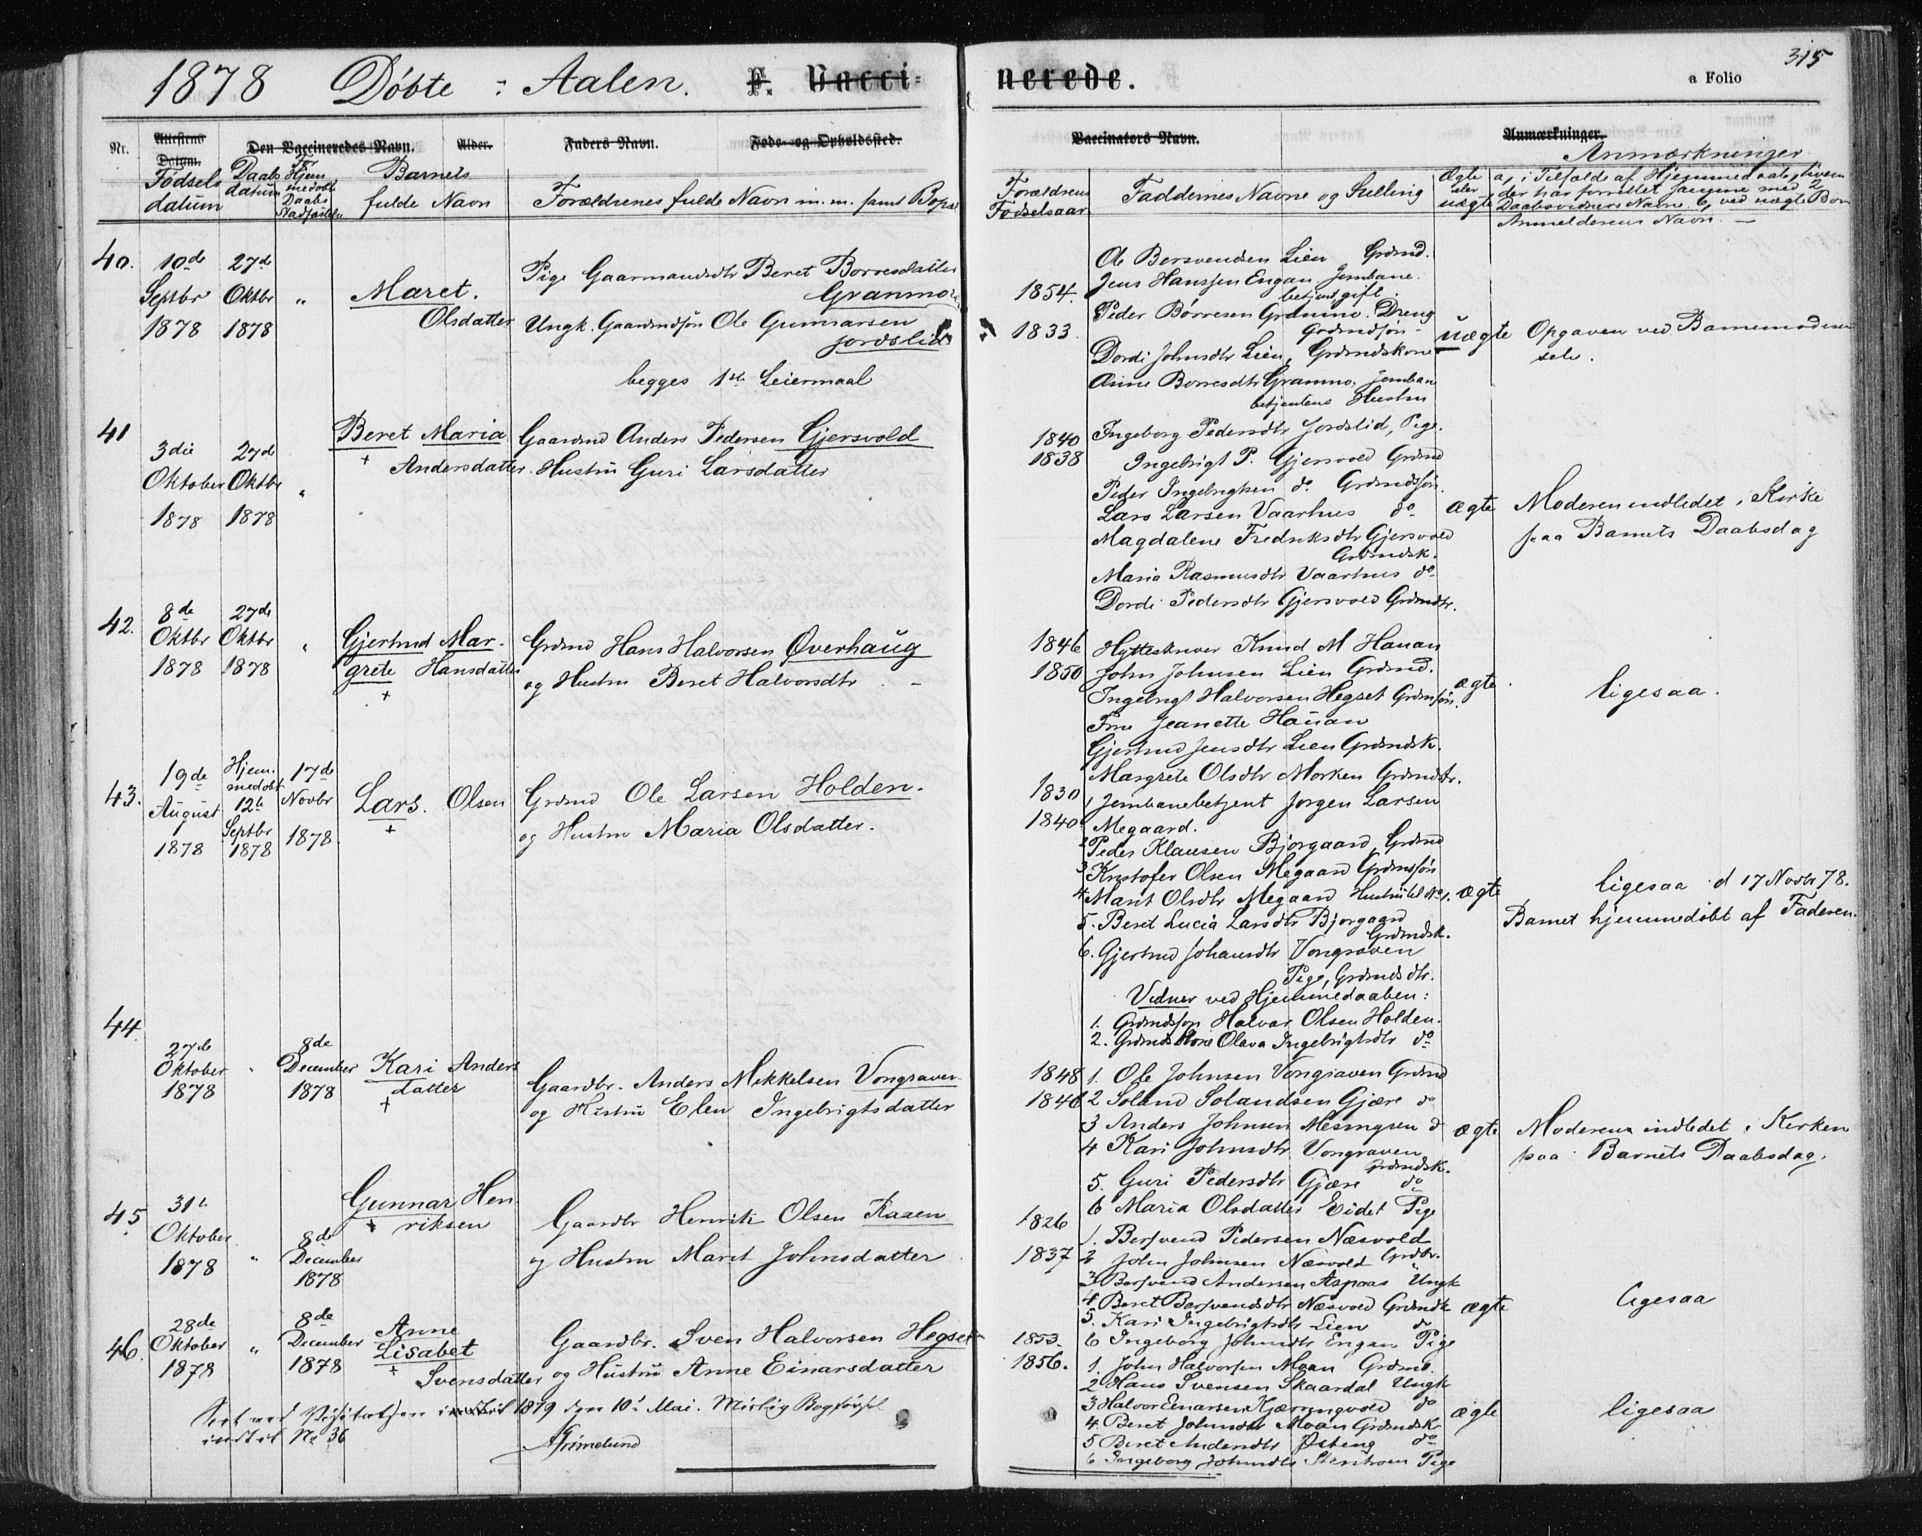 1878 Döbte : Aalen. F. Vacci-
nerede.
a Folio 315
Nr. Attestens Datum. Den Vaccineredes Navn. Alder. Faders Navn. Føde- og Opholdssted.
Vaccinators Navn. Anmærkninger.
Fødsels datum
Daabs datum
For Hjemmedøbte Daabs Stadfæstelse
Barnets fulde Navn
Forældrenes fulde Navn m. m. samt Bopæl
Forældrenes Fødselsaar
Faddernes Navne og Stilling
Ægte eler uægte
Anmærkninger
a, i Tilfælde af Hjemmedaab, hvem
der har forrettet samme med 2
Daabsvidners Navne b, ved uægte Børn
Anmelderens Navn —
40.
10de Septbr 1878
27de Oktbr 1878
"
Maret. Olsdatter
Pige Gaarmandsdtr Beret Borresdatter
Granmo
Ungk. Gaardmdsøn Ole Gunnarsen
Jordslid
begges 1ste Leiermaal
1854.
1833.
Ole Bersvendsen Lien Grdmd.
Jens Hanssen Engan Jernbane-
betjent gift.
Peder Børresen Granmo. Dreng
Grdmdsøn
Dordi Johnsdtr Lien, Grdmdskone
Anne Borresdtr Granmo, Jernban
betjentens Hustru
Ingeborg Pedersdtr Jordslid, Pige.
uægte
Opgaven ved Barnemoderen
selv.
41
3die Oktober 1878
27de Oktbr 1878
"
Beret Maria
+ Andersdatter.
Gaardmd Anders Pedersen Gjersvold
Hustru Guri Larsdatter
1840
1838
Ingebrigt P. Gjersvold Grdmd
Peder Ingebrigtsen do Grdmdsøn.
Lars Larsen Vaarhus do
Magdalene Fredriksdtr Gjersvold
Grdmdsk.
Maria Rasmusdtr Vaarhus do
Dordi Pedersdtr Gjersvold Grdmdtr.
Ægte
Moderen indledet i Kirke
paa Barnets Daabsdag
42.
8de Oktbr 1878
27de Oktbr 1878
"
Gjertrud Mar-
grete Hansdatter
+
Grdmd Hans Halvorsen Overhaug
og Hustru Beret Halvorsdtr. —
1846
1850
Hytteskriver Knud M Hauan
John Johnsen Lien Grdmd.
Ingebrigt Halvorsen Hegset Grdmsøn.
Frue Jeanette Hauan
Gjertrud Jensdtr Lien Grdmdsk.
Margrete Olsdtr Morken Grdmdtr.
ægte
ligesaa.
43.
19de August 1878
Hjem-
medøbt
12te Septbr 1878
17de Novbr 1878.
Lars. Olsen
+
Grdmd Ole Larsen Holden.
og Hustru Maria Olsdatter.
1830
1840.
1 Jernbanebetjent Jørgen Larsen
Megaard.
2 Peder Klausen Bjorgaard, Grdmd
3 Kristofer Olsen Megaard Grdmdsøn
4. Marit Olsdtr Megaard Hustru til No 1.
5. Beret Lucia Larsdtr Bjorgaard
Grdmdsk.
6. Gjertrud Johansdtr Vongraven
Pige, Grdmdsdtr.
Vidner ved Hjemmedaaben:
1. Grdmdsøn Halvor Olsen Holden.
2. Grdmdskone Olava Ingebrigtsdtr do
Ægte
ligesaa d 17 Novbr 78.
Barnet hjemmedøbt af Faderen.
44.
27de Oktober 1878
"
8de December 1878
Kari Anders
datter
+
Gaardbr. Anders Mikkelsen Vongraven
og Hustru Elen Ingebrigtsdatter
1848
1846
1. Ole Johnsen Vongraven Grdmd
2 Soland Solandsen Gjære do
3 Anders Johnsen d
4 Kari Johnsdtr Vongraven
Grdmdsk.
5. Guri Pedersdtr Gjære do
6 Maria Olsdatter Eidet Pige
ægte
Moderen indledet i Kirken
paa Barnets Daabsdag.
45.
31te Oktober 1878
"
8de December 1878
Gunnar Hen
+ riksen
Gaardbr Henrik Olsen Raaen
og Hustru Marit Johnsdatter
1826
1837
1. Bersvend Pedersen Næsvold
Grdbr.
2 John Johnsen Næsvold "
3 Bersvend Andersen Aspaas Ungk
4. Beret Bersvendsdtr Næsvold Grdmdk
5. Kari Ingebrigtsdtr Lien do
6 Ingeborg Johnsdtr Engan Pige
ægte
ligesaa
46.
28de Oktober 1878
"
8de December 1878
Anne Lisabet
+ Svensdatter
Gaardbr. Sven Halvorsen Hegset
og Hustru Anne Einarsdatter
1853.
1856.
1. John Halvorsen Moan Grdmd
2 Hans Svensen Skaardal Ungk
3 Halvor Einarsen Kjærringvold do
4. Beret Johnsdtr Moan Grdmdsk.
5 Beret Andersdtr Østeng do
6 Ingeborg Johnsdtr Pige
ægte
ligesaa
Seet ved Visitatsen 1879 den 10de Mai. Bogførsel
indtil No 36
AGrimelund